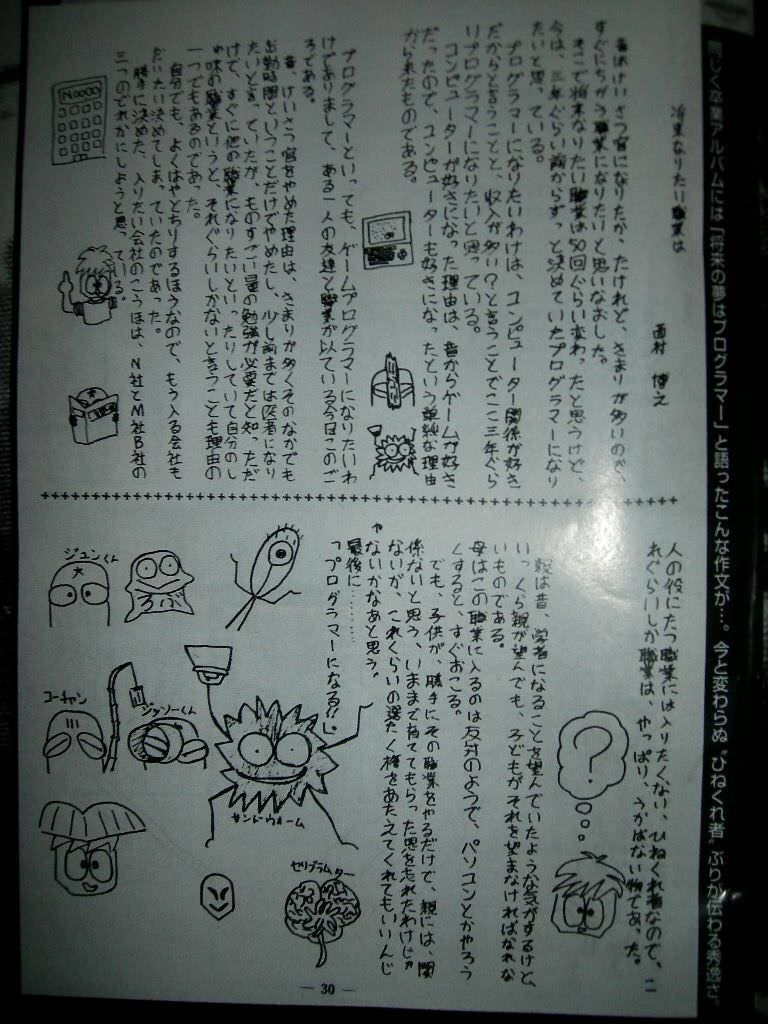 同じく卒業アルバムには「将来の夢はプログラマー」と語ったこんな作文が…。今と変わらぬ“ひねくれ者”ぶりが伝わる秀逸さ。
将来なりたい職業は
西村 博之
昔はけいさつ官になりたか、たけれど、きまりが多いので、
すぐにちがう職業になりたいと思いなおした。
そこで将来なりたい職業は50回ぐらい変わったと思うけど、
今は、三年ぐらい前からずっと決めていたプログラマーになり
たいと思っている。
プログラマーになりたいわけは、コンピューター関係が好き
だからと言うことと、収入が多い?と言うことでここ三年ぐら
いプログラマーになりたいと思っている。
コンピューターが好きになった理由は、昔からゲームが好き
だったので、コンピューターも好きになったという単純な理由
から来たものである。
プログラマーといっても、ゲームプログラマーになりたいわ
けでありまして、ある一人の友達と職業が似ている今日このご
ろである。
昔、けいさつ官をやめた理由は、きまりが多くそのなかでも
出勤時間ということだけでやめたし、少し前までは医者になり
たいとき、ていたが、ものすごい量の勉強が必要だと知っただ
けで、すぐに他の職業になりたいといったりしていて自分のし
ゅ味の職業というと、それぐらいしかないと言うことも理由の
一つでもあるのであった。
自分でも、よくはやとちりするほうなので、もう入る会社も
だいたい決めてしまっていたのであった。
勝手に決めた、入りたい会社のこうほは、N社とM社B社の
三つのどれかにしようと思っている。
No000
人の役にたつ職業には入りたくない、ひねくれ者なので、こ
れぐらいしか職業は、やっぱり、うかばない物であった。
親は昔、学者になることを望んでいたような気がするけど、
いっくら親が望んでも、子どもがそれを望まなければなれな
いものである。
母はこの職業に入るのは反対のようで、パソコンとかやろう
くすると、すぐおこる。
でも、子供が、勝手にその職業をやるだけで、親には、関
係ないと思う、いままで育ててもらった恩を忘れたわけじゃ
ないが、これくらいの選たく権をあたえてくれてもいいんじ
ゃないかなあと思う。
最後に………
「プログラマーになる!!」
?
ジュンくん
ろが
コーチャン
ジャソーくん
サンドウォーム
セリブラムター
— 30 —